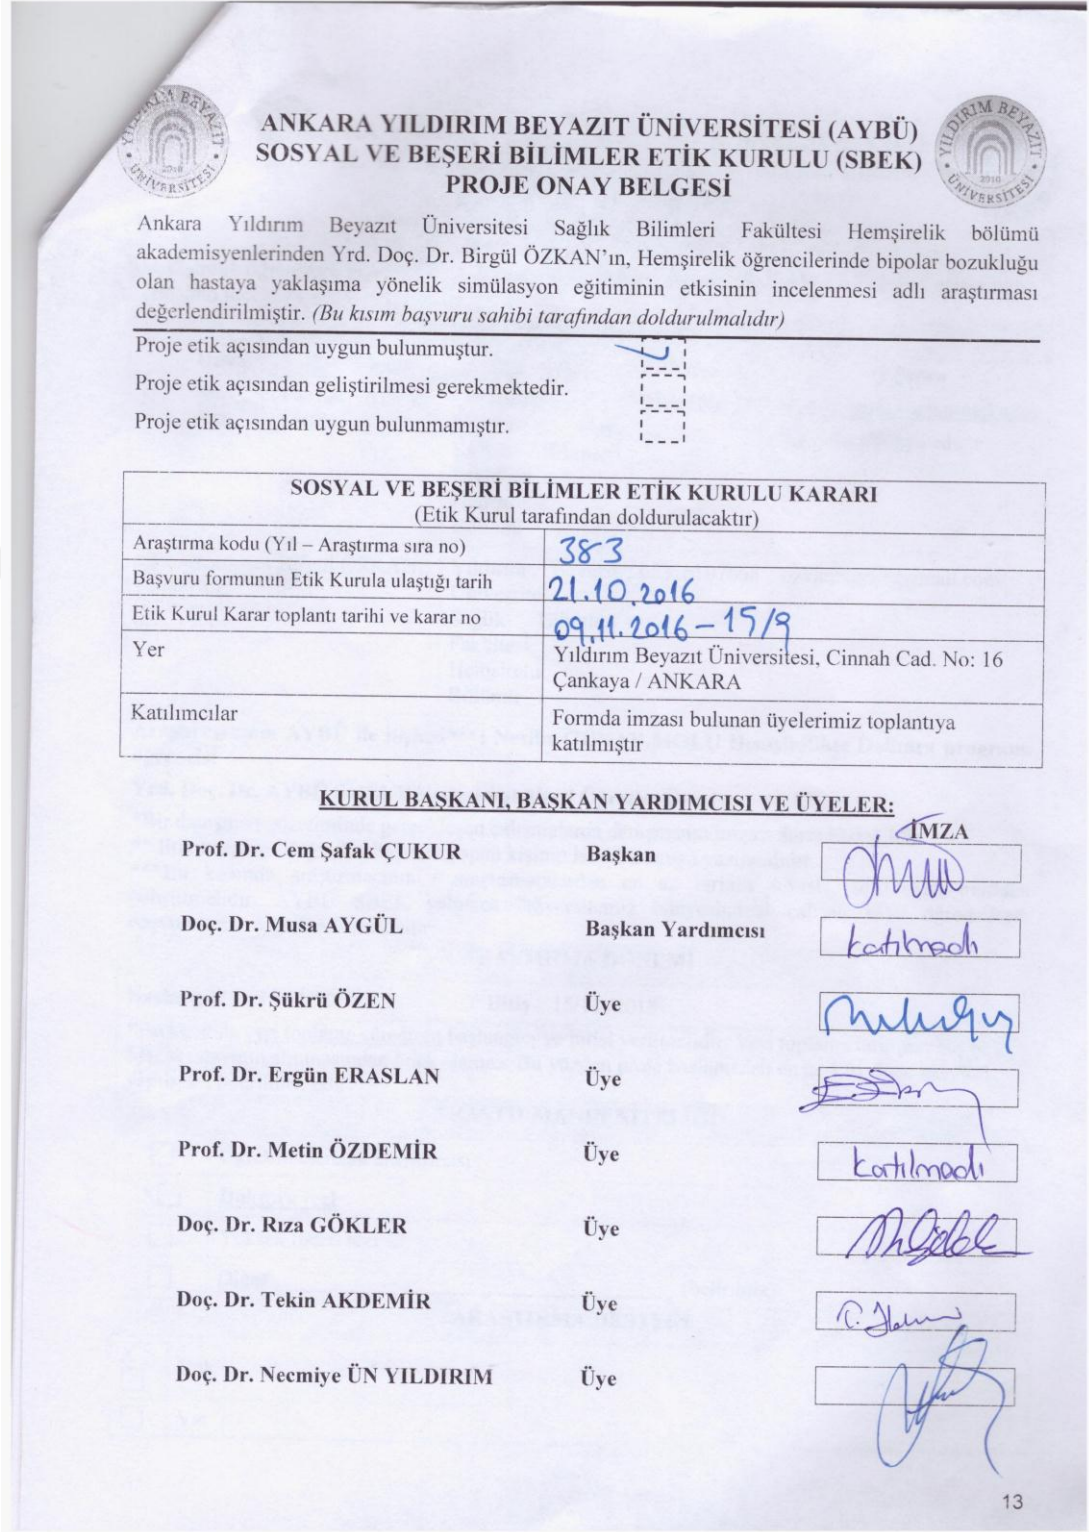 ANKARA YILDIRIM BEYAZIT ÜNİVERSİTESİ (AYBÜ)
SOSYAL VE BEŞERİ BİLİMLER ETİK KURULU (SBEK)
PROJE ONAY BELGESİ
YILDIRIM BEYAZIT
2010
ÜNİVERSİTESİ
Ankara Yıldırım Beyazıt Üniversitesi Sağlık Bilimleri Fakültesi Hemşirelik bölümü
akademisyenlerinden Yrd. Doç. Dr. Birgül ÖZKAN'ın, Hemşirelik öğrencilerinde bipolar bozukluğu
olan hastaya yaklaşıma yönelik simülasyon eğitiminin etkisinin incelenmesi adlı araştırması
değerlendirilmiştir. (Bu kısım başvuru sahibi tarafından doldurulmalıdır)
Proje etik açısından uygun bulunmuştur.
Proje etik açısından geliştirilmesi gerekmektedir.
Proje etik açısından uygun bulunmamıştır.
SOSYAL VE BEŞERİ BİLİMLER ETİK KURULU KARARI
(Etik Kurul tarafından doldurulacaktır)
Araştırma kodu (Yıl – Araştırma sıra no) 383
Başvuru formunun Etik Kurula ulaştığı tarih 21.10.2016
Etik Kurul Karar toplantı tarihi ve karar no 09.11.2016 – 15/9
Yer Yıldırım Beyazıt Üniversitesi, Cinnah Cad. No: 16
Çankaya / ANKARA
Katılımcılar Formda imzası bulunan üyelerimiz toplantıya
katılmıştır
KURUL BAŞKANI, BAŞKAN YARDIMCISI VE ÜYELER:
İMZA
Prof. Dr. Cem Şafak ÇUKUR Başkan
Doç. Dr. Musa AYGÜL Başkan Yardımcısı Katılmadı
Prof. Dr. Şükrü ÖZEN Üye
Prof. Dr. Ergün ERASLAN Üye
Prof. Dr. Metin ÖZDEMİR Üye Katılmadı
Doç. Dr. Rıza GÖKLER Üye
Doç. Dr. Tekin AKDEMİR Üye
Doç. Dr. Necmiye ÜN YILDIRIM Üye
13